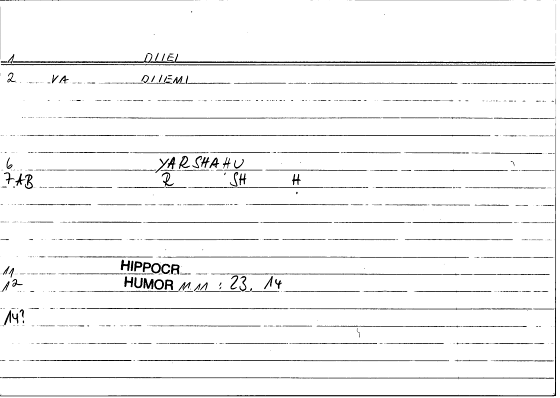 1 DIIEI
2 VA DIIEMI
6 YARSHAHU
7AB R SH H
11 HIPPOCR
12 HUMOR 11 11 : 23. 14
14?